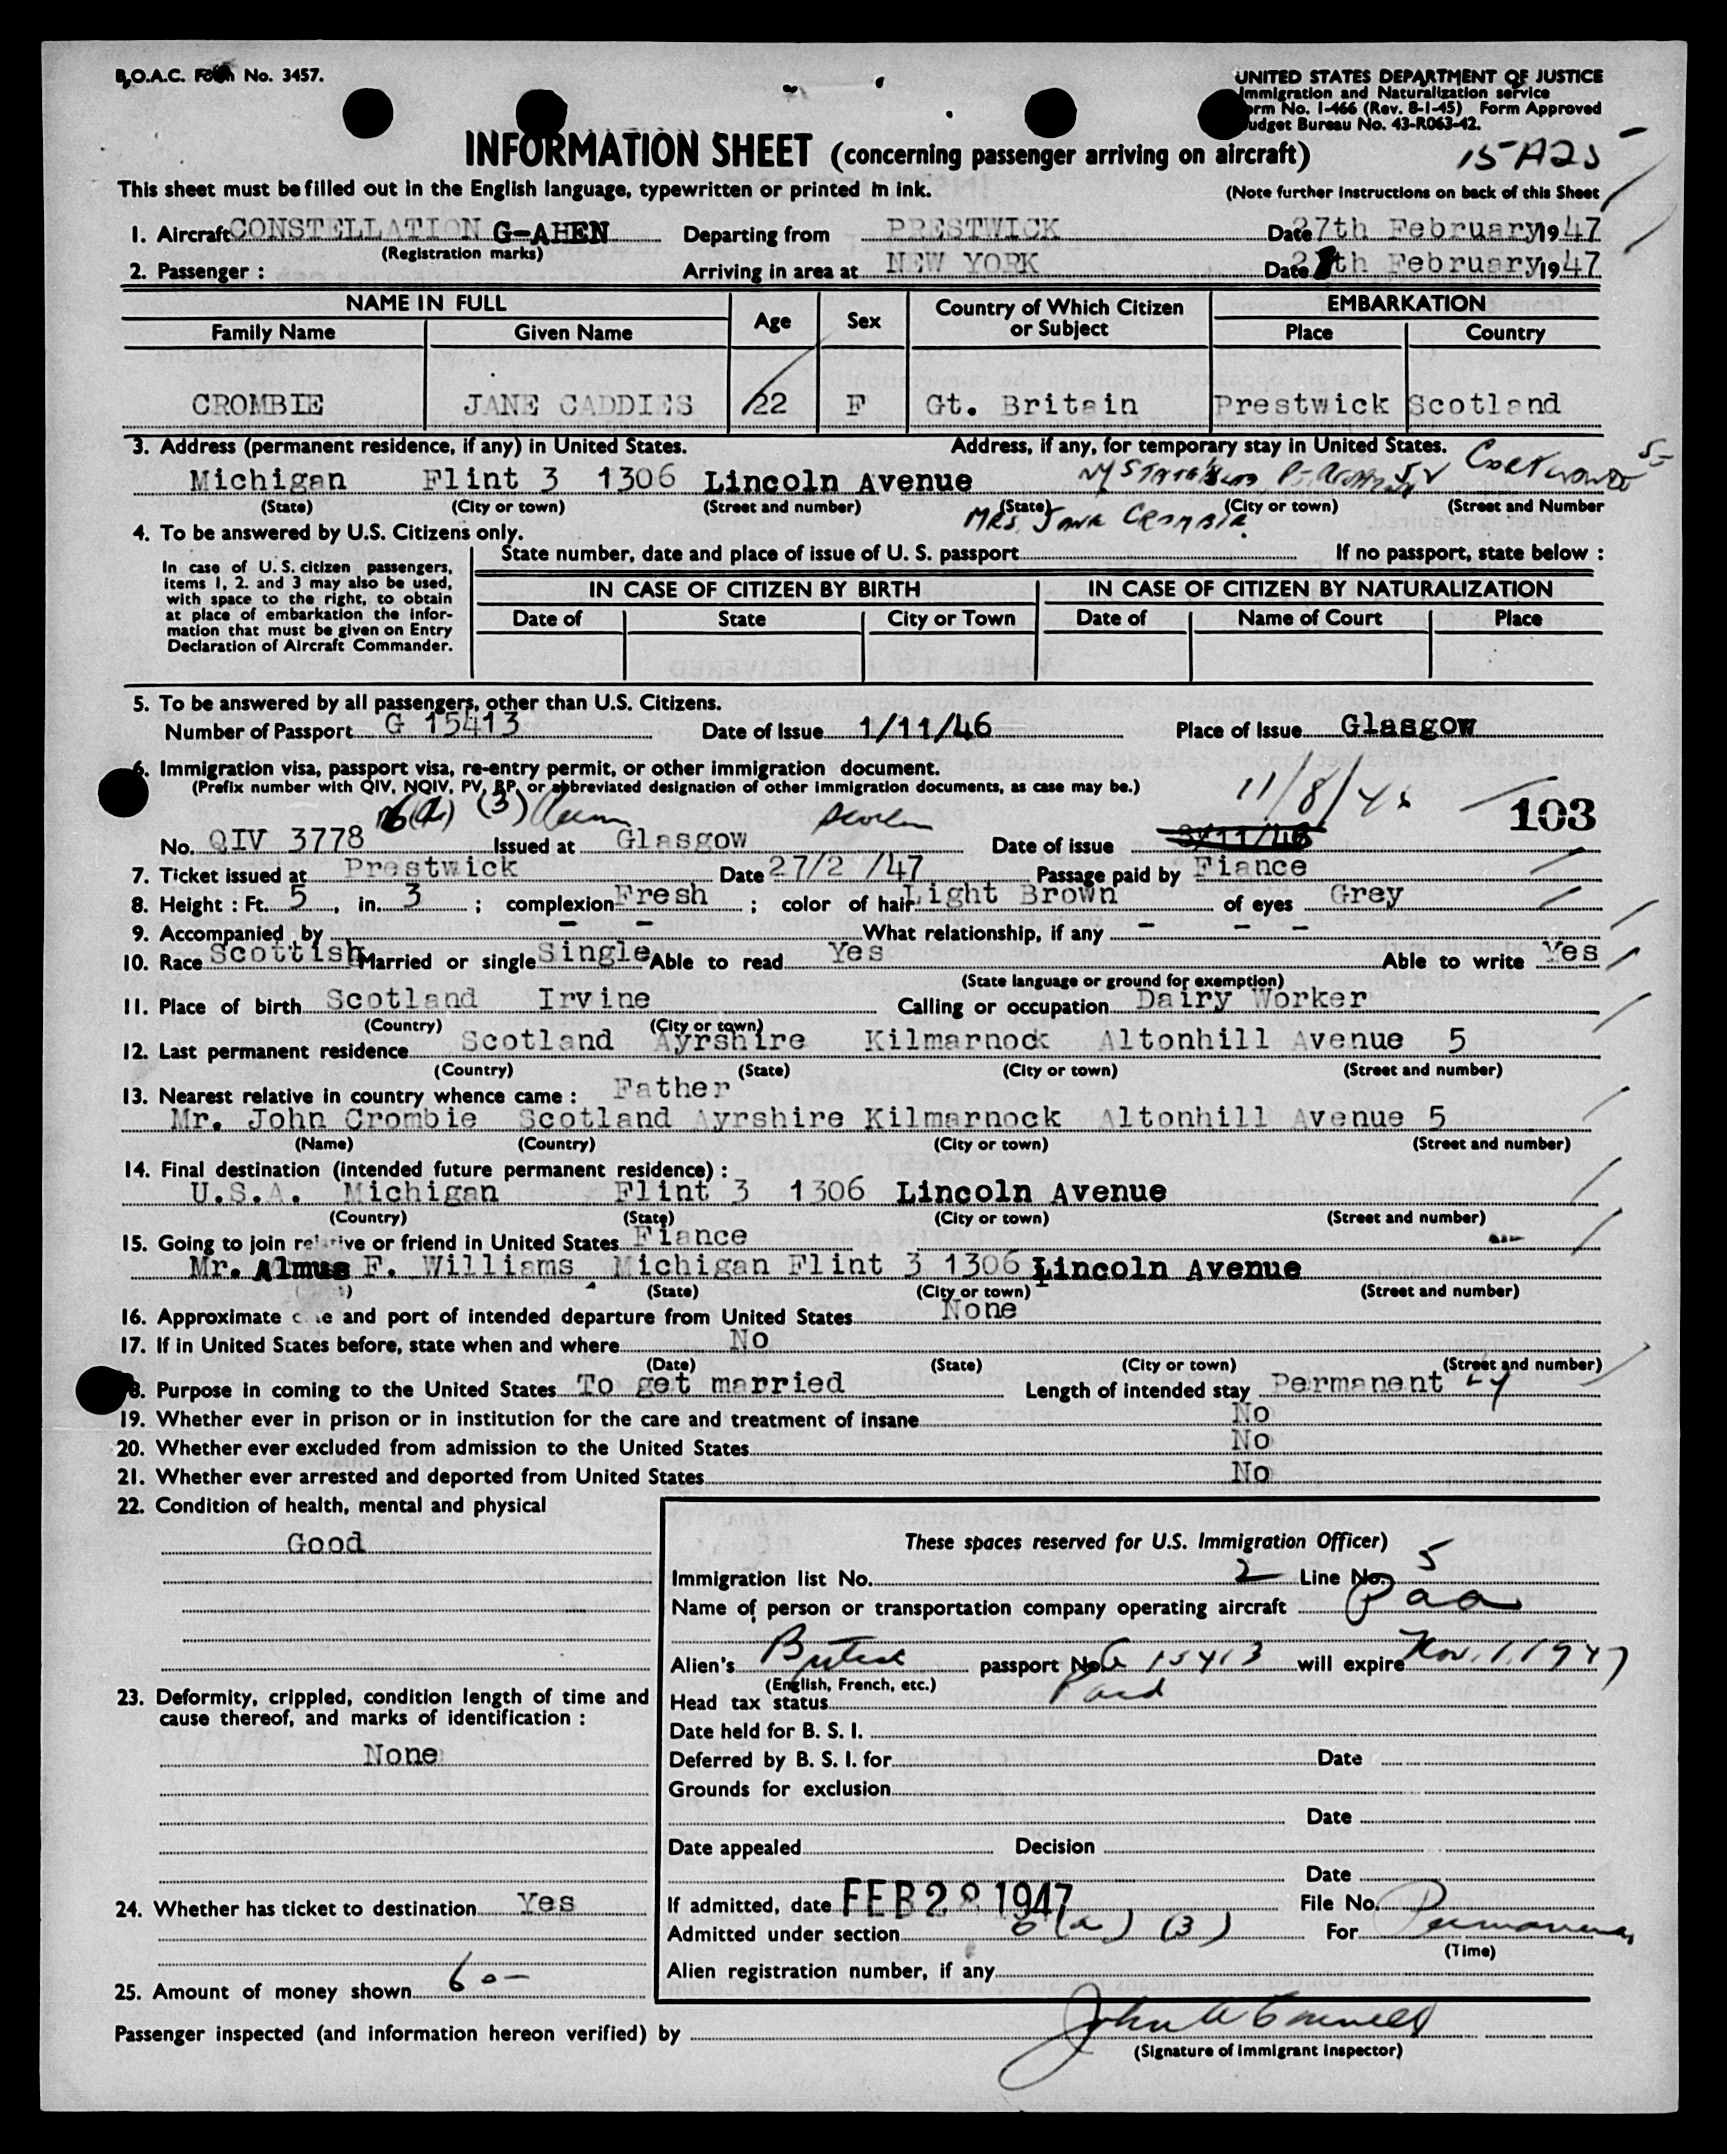 B.O.A.C. Form No. 3457.
UNITED STATES DEPARTMENT OF JUSTICE
Immigration and Naturalization service
Form No. I-466 (Rev. 8-1-45) Form Approved
Budget Bureau No. 43-R063-42.
INFORMATION SHEET (concerning passenger arriving on aircraft)
This sheet must be filled out in the English language, typewritten or printed in ink.
(Note further instructions on back of this Sheet
1. Aircraft CONSTELLATION G-AHEN Departing from PRESTWICK Date 27th February 1947
(Registration marks)
2. Passenger : Arriving in area at NEW YORK Date 28th February 1947
NAME IN FULL Age Sex Country of Which Citizen or Subject EMBARKATION
Family Name Given Name Place Country
CROMBIE JANE CADDIES 22 F Gt. Britain Prestwick Scotland
3. Address (permanent residence, if any) in United States. Address, if any, for temporary stay in United States.
Michigan Flint 3 1306 Lincoln Avenue
(State) (City or town) (Street and number) (State) (City or town) (Street and Number
MRS. JANE CROMBIE.
4. To be answered by U.S. Citizens only.
State number, date and place of issue of U. S. passport If no passport, state below :
In case of U. S. citizen passengers,
items 1, 2. and 3 may also be used,
with space to the right, to obtain
at place of embarkation the infor-
mation that must be given on Entry
Declaration of Aircraft Commander.
IN CASE OF CITIZEN BY BIRTH IN CASE OF CITIZEN BY NATURALIZATION
Date of State City or Town Date of Name of Court Place
5. To be answered by all passengers, other than U.S. Citizens.
Number of Passport G 15413 Date of Issue 1/11/46 Place of Issue Glasgow
6. Immigration visa, passport visa, re-entry permit, or other immigration document.
(Prefix number with QIV, NQIV, PV, RP, or abbreviated designation of other immigration documents, as case may be.)
6(a) (3) 11/8/46 103
No. QIV 3778 Issued at Glasgow Date of issue
7. Ticket issued at Prestwick Date 27/2 /47 Passage paid by Fiance
8. Height : Ft. 5 , in. 3 ; complexion Fresh ; color of hair Light Brown of eyes Grey
9. Accompanied by - - What relationship, if any - - -
10. Race Scottish Married or single Single Able to read Yes Able to write Yes
(State language or ground for exemption)
11. Place of birth Scotland Irvine Calling or occupation Dairy Worker
(Country) (City or town)
12. Last permanent residence Scotland Ayrshire Kilmarnock Altonhill Avenue 5
(Country) (State) (City or town) (Street and number)
13. Nearest relative in country whence came : Father
Mr. John Crombie Scotland Ayrshire Kilmarnock Altonhill Avenue 5
(Name) (Country) (City or town) (Street and number)
14. Final destination (intended future permanent residence) :
U.S.A. Michigan Flint 3 1306 Lincoln Avenue
(Country) (State) (City or town) (Street and number)
15. Going to join relative or friend in United States Fiance
Mr. Almus F. Williams Michigan Flint 3 1306 Lincoln Avenue
(State) (City or town) (Street and number)
16. Approximate date and port of intended departure from United States None
17. If in United States before, state when and where No
(Date) (State) (City or town) (Street and number)
18. Purpose in coming to the United States To get married Length of intended stay Permanent ly
19. Whether ever in prison or in institution for the care and treatment of insane No
20. Whether ever excluded from admission to the United States No
21. Whether ever arrested and deported from United States No
22. Condition of health, mental and physical
Good
23. Deformity, crippled, condition length of time and
cause thereof, and marks of identification :
None
24. Whether has ticket to destination Yes
25. Amount of money shown 60-
These spaces reserved for U.S. Immigration Officer)
Immigration list No. 2 Line No. 5
Name of person or transportation company operating aircraft Paa
Alien's British passport No. G 15413 will expire Nov. 1, 1947
(English, French, etc.)
Head tax status Paid
Date held for B. S. I.
Deferred by B. S. I. for Date
Grounds for exclusion
Date
Date appealed Decision
Date
If admitted, date FEB 28 1947 File No.
Admitted under section 6(a) (3) For Permanent
(Time)
Alien registration number, if any
Passenger inspected (and information hereon verified) by
(Signature of immigrant inspector)